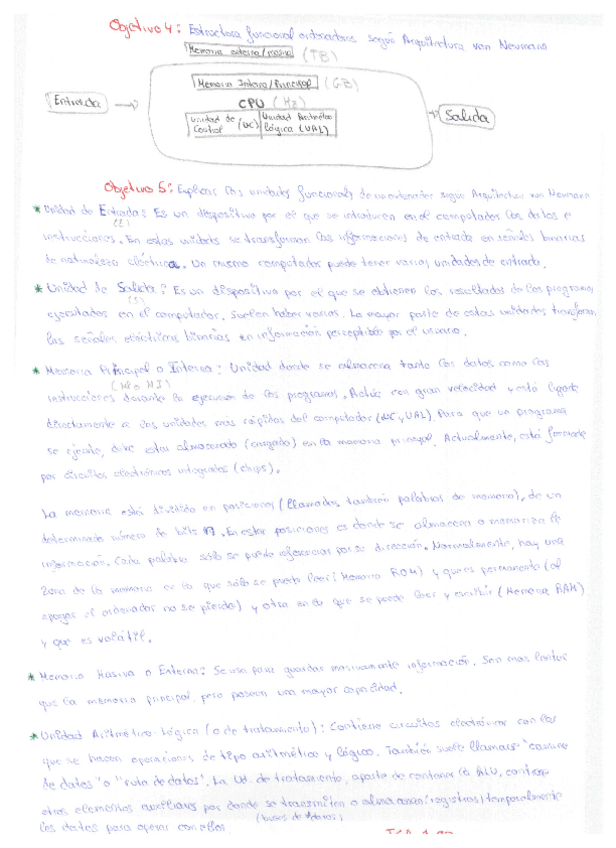 Objetivo 4: Estructura funcional ordenadores según Arquitectura von Neumann
Memoria externa/masiva (TB)
Memoria Interna/Principal (GB)
Entrada → CPU (Hz) → Salida
Unidad de Control (UC) Unidad Aritmético Lógica (UAL)
Objetivo 5: Explicar las unidades funcionales de un ordenador según Arquitectura von Neumann
* Unidad de Entrada: Es un dispositivo por el que se introducen en el computador los datos e
(E)
instrucciones. En estas unidades se transforman las informaciones de entrada en señales binarias
de naturaleza eléctrica. Un mismo computador puede tener varias unidades de entrada.
* Unidad de Salida: Es un dispositivo por el que se obtienen los resultados de los programas
(S)
ejecutados en el computador. Suelen haber varios. La mayor parte de estas unidades transforman
las señales eléctricas binarias en información perceptible por el usuario.
* Memoria Principal o Interna: Unidad donde se almacena tanto los datos como las
(MP o MI)
instrucciones durante la ejecución de los programas. Actúa con gran velocidad y está ligada
directamente a las unidades más rápidas del computador (UC y UAL). Para que un programa
se ejecute, debe estar almacenado (cargado) en la memoria principal. Actualmente, está formada
por circuitos electrónicos integrados (chips).
La memoria está dividida en posiciones (llamadas también palabras de memoria), de un
determinado número de bits n. En estas posiciones es donde se almacena o memoriza la
información. Cada palabra sólo se puede referenciar por su dirección. Normalmente, hay una
zona de la memoria en la que sólo se puede leer (Memoria ROM) y que es permanente (al
apagar el ordenador no se pierde) y otra en la que se puede leer y escribir (Memoria RAM)
y que es volátil.
* Memoria Masiva o Externa: Se usa para guardar masivamente información. Son mas lentas
que la memoria principal, pero poseen una mayor capacidad.
* Unidad Aritmético-Lógica (o de tratamiento): Contiene circuitos electrónicos con los
que se hacen operaciones de tipo aritmético y lógico. También suele llamarse "camino
de datos" o "ruta de datos". La Ud. de tratamiento, aparte de contener la ALU, contiene
otros elementos auxiliares por donde se transmiten o almacenan (registros) temporalmente
(buses de datos)
los datos para operar con ellos.